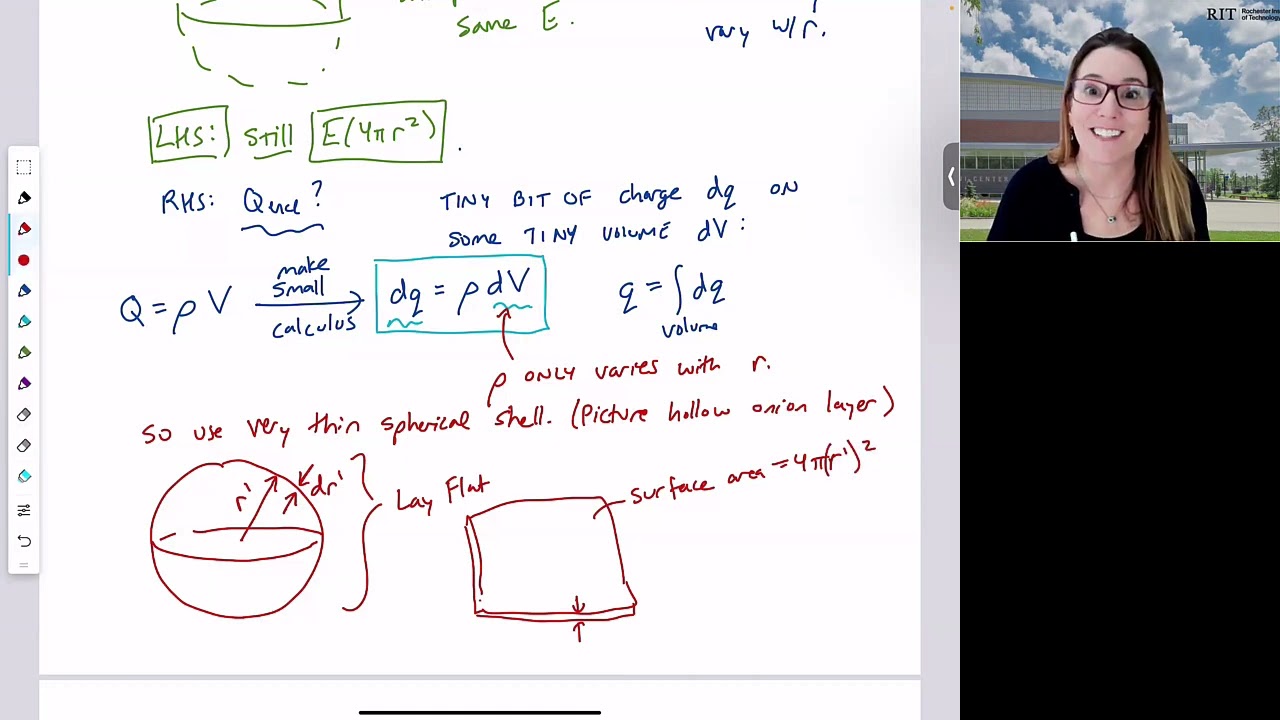 same E.
vary w/r.
LHS: still E(4πr²).
RHS: Qenc?
TINY BIT OF charge dq ON
some TINY VOLUME dV:
Q = ρV
make
small
calculus
dq = ρ dV
q = ∫ dq
volume
ρ ONLY varies with r.
so use very thin spherical shell. (Picture hollow onion layer)
r'
dr'
Lay Flat
surface area = 4π(r')²
RIT
Rochester Ins
of Technology